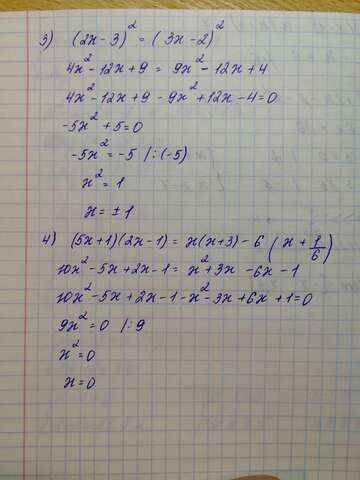 3) (2x-3)² = (3x-2)²
4x²-12x+9 = 9x²-12x+4
4x²-12x+9-9x²+12x-4=0
-5x²+5=0
-5x²=-5 /:(-5)
x²=1
x=±1
4) (5x+1)(2x-1)=x(x+3)-6(x+1/6)
10x²-5x+2x-1=x²+3x-6x-1
10x²-5x+2x-1-x²-3x+6x+1=0
9x²=0 /:9
x²=0
x=0